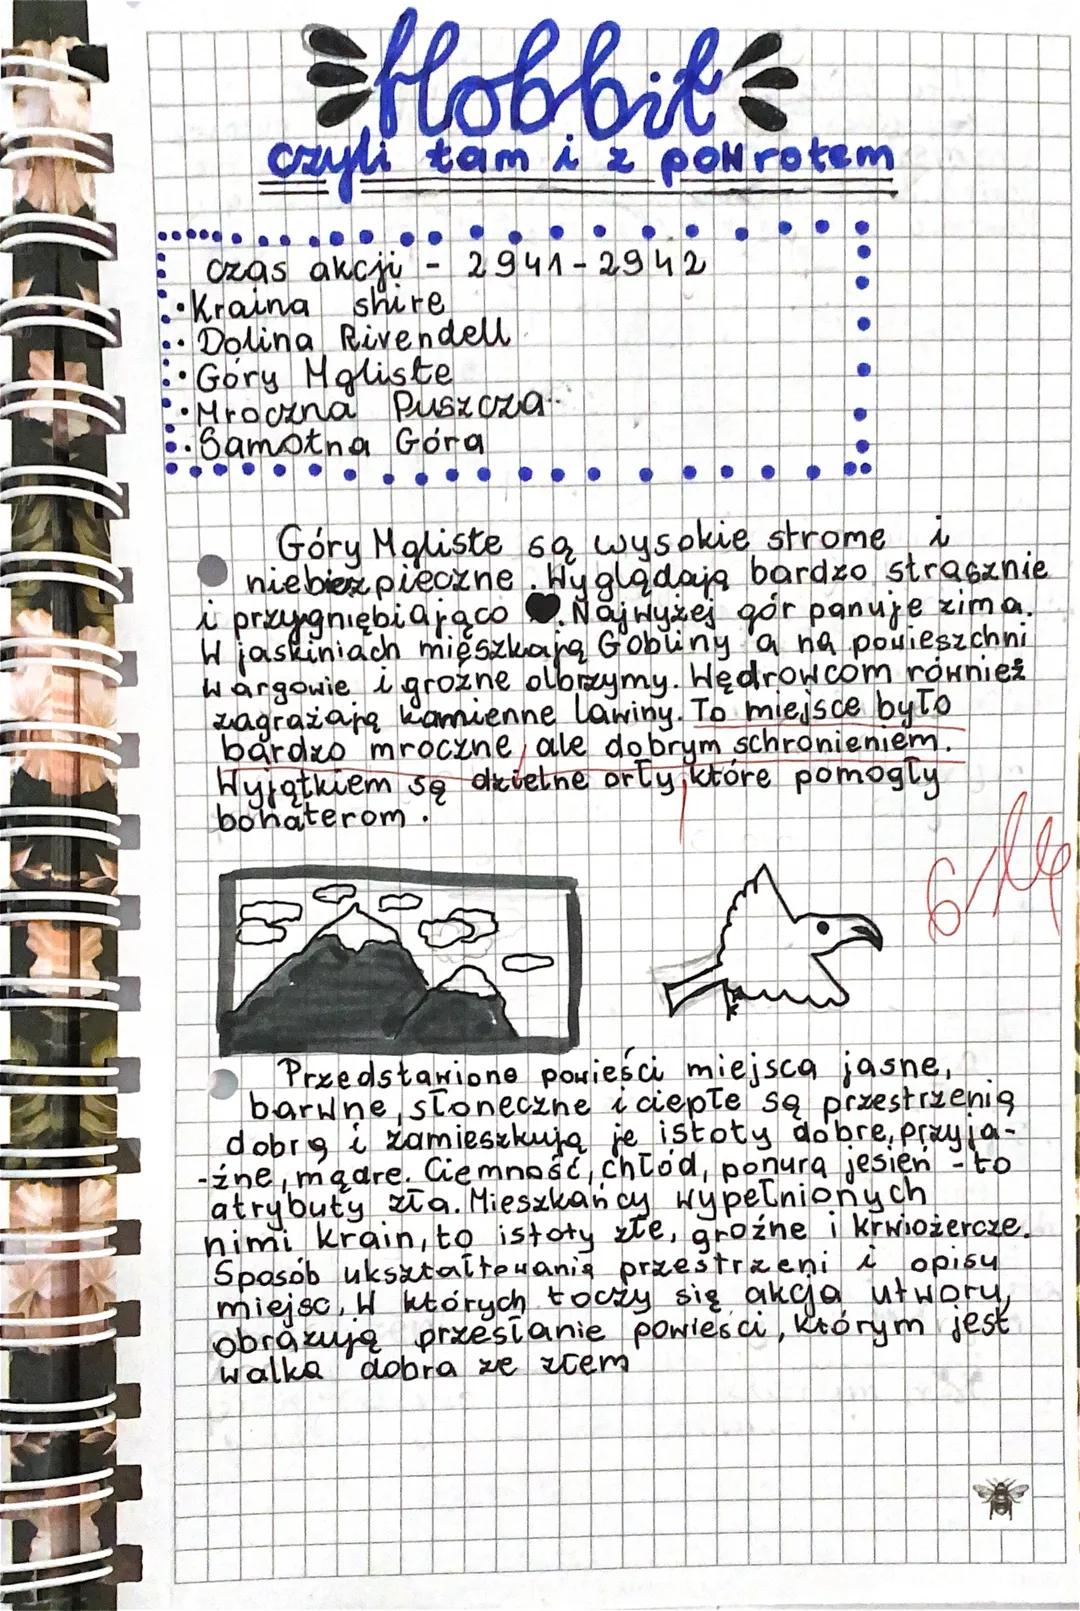 Hobbit
czyli tam i z powrotem
czas akcji - 2941-2942
• Kraina shire
• Dolina Rivendell
• Góry Mgliste
• Mroczna Puszcza
• Samotna Góra
Góry Mgliste są wysokie strome i
niebiezpieczne. Wyglądają bardzo strasznie
i przygniębiająco. Najwyżej gór panuje zima.
W jaskiniach mieszkają Gobliny a na powieszchni
wargowie i groźne olbrzymy. Wędrowcom również
zagrażają kamienne lawiny. To miejsce było
bardzo mroczne, ale dobrym schronieniem.
Wyjątkiem są dzielne orły, które pomogły
bohaterom.
6
Przedstawione powieści miejsca jasne,
barwne, słoneczne i ciepłe są przestrzenią
dobrą i zamieszkują je istoty dobre, przyja-
-źne, mądre. Ciemność, chłód, ponura jesień - to
atrybuty zła. Mieszkańcy wypełnionych
nimi krain, to istoty złe, groźne i krwiożercze.
Sposób ukształtowania przestrzeni i opisu
miejsc, w których toczy się akcja utworu,
obrazują przesłanie powieści, którym jest
walka dobra ze złem